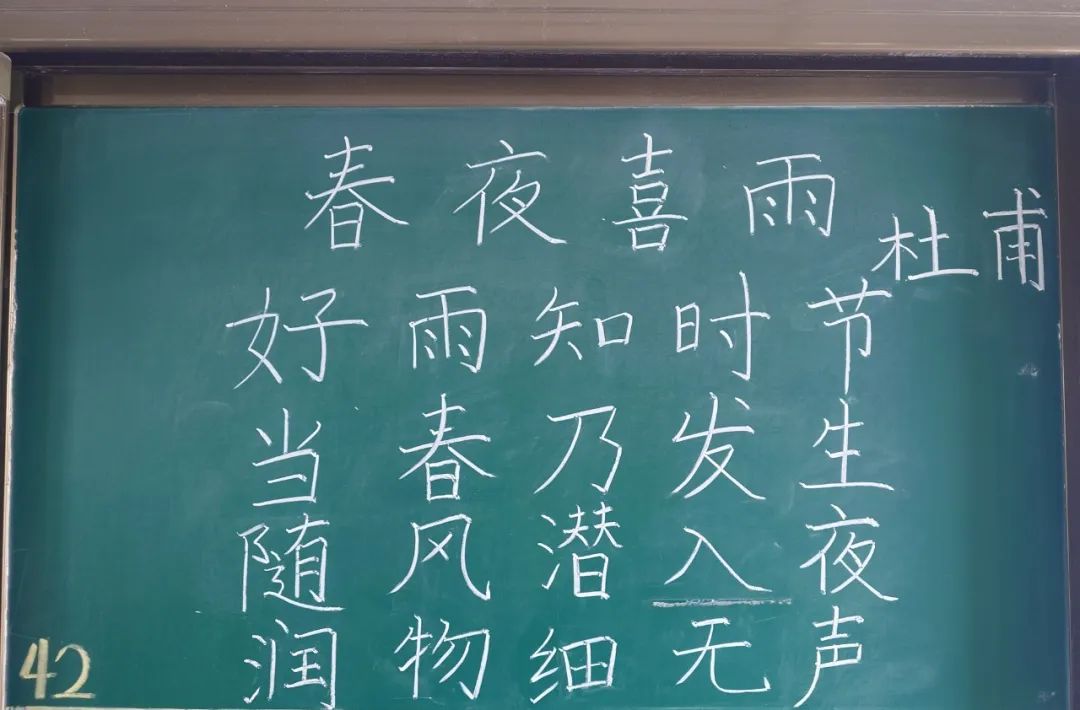 春夜喜雨
杜甫
好雨知时节
当春乃发生
随风潜入夜
润物细无声
42